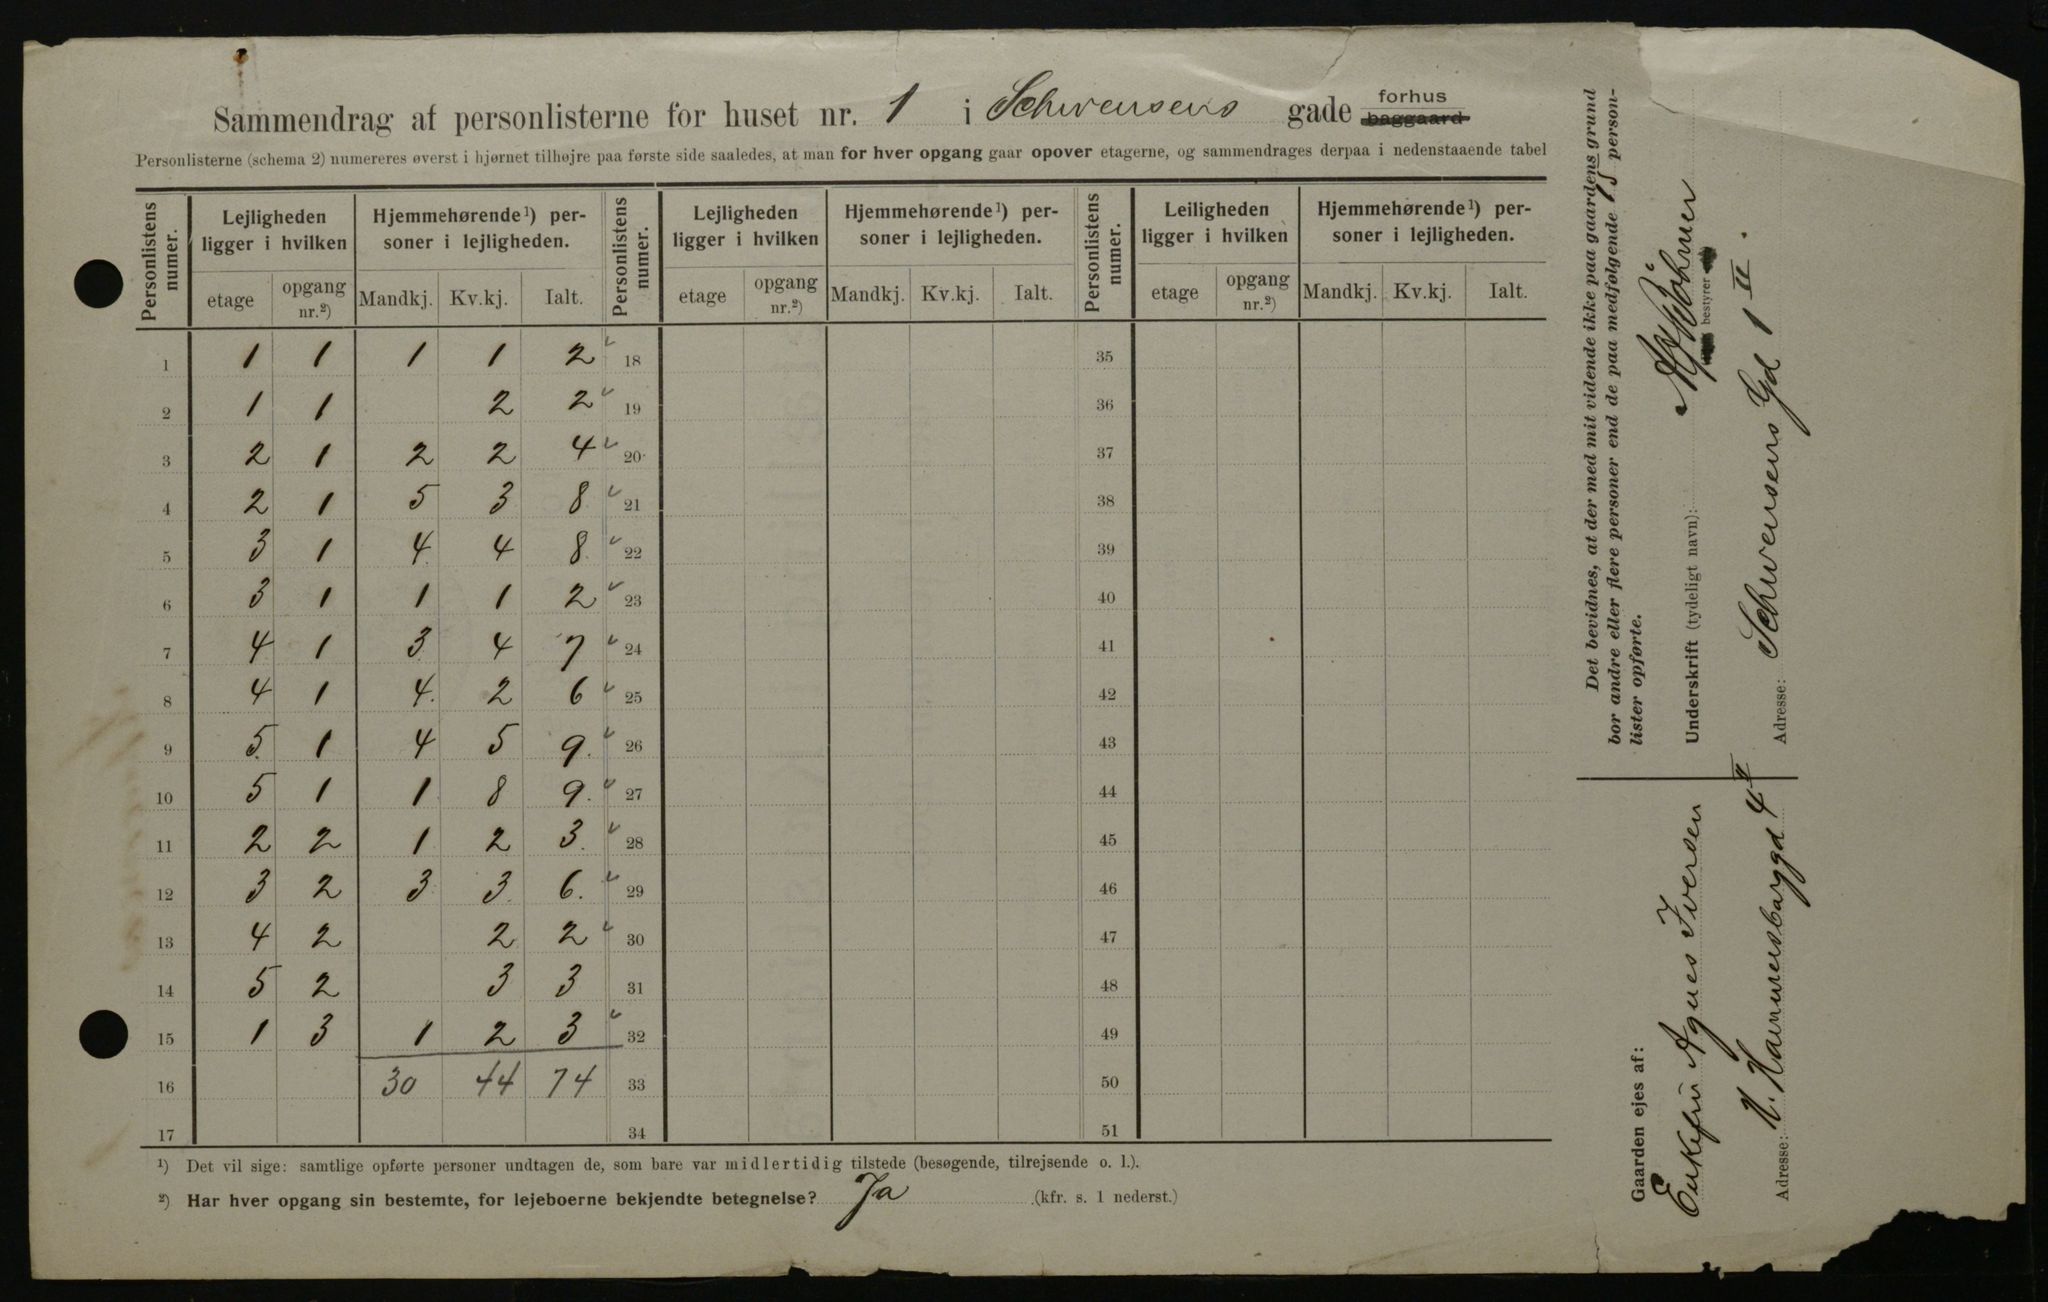 Sammendrag af personlisterne for huset nr. 1 i Schwensens gade forhus baggaard
Personlisterne (schema 2) numereres øverst i hjørnet tilhøjre paa første side saaledes, at man for hver opgang gaar opover etagerne, og sammendrages derpaa i nedenstaaende tabel
Personlistens numer. Lejligheden ligger i hvilken Hjemmehørende¹) personer i lejligheden. Personlistens numer. Lejligheden ligger i hvilken Hjemmehørende¹) personer i lejligheden. Personlistens numer. Leiligheden ligger i hvilken Hjemmehørende¹) personer i lejligheden.
etage opgang nr.²) Mandkj. Kv.kj. Ialt. etage opgang nr.²) Mandkj. Kv.kj. Ialt. etage opgang nr.²) Mandkj. Kv.kj. Ialt.
1 1 1 1 1 2 18 35
2 1 1 2 2 19 36
3 2 1 2 2 4 20 37
4 2 1 5 3 8 21 38
5 3 1 4 4 8 22 39
6 3 1 1 1 2 23 40
7 4 1 3 4 7 24 41
8 4 1 4 2 6 25 42
9 5 1 4 5 9 26 43
10 5 1 1 8 9 27 44
11 2 2 1 2 3 28 45
12 3 2 3 3 6 29 46
13 4 2 2 2 30 47
14 5 2 3 3 31 48
15 1 3 1 2 3 32 49
16 30 44 74 33 50
17 34 51
¹) Det vil sige: samtlige opførte personer undtagen de, som bare var midlertidig tilstede (besøgende, tilrejsende o. l.).
²) Har hver opgang sin bestemte, for lejeboerne bekjendte betegnelse? Ja (kfr. s. 1 nederst.)
Det bevidnes, at der med mit vidende ikke paa gaardens grund
bor andre eller flere personer end de paa medfølgende 15 person-
lister opførte.
Underskrift (tydeligt navn):
bestyrer
Adresse: Schwensens Gd 1 II.
Gaarden ejes af:
Enkefru Agnes Iversen
Adresse: N. Hammersborggd 4 II